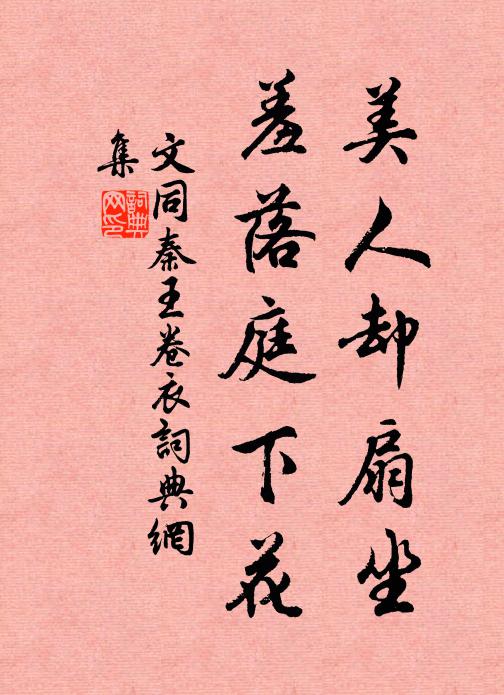 美人却扇坐
羞落庭下花
文同秦王卷衣詞典網
集
詞典
网印